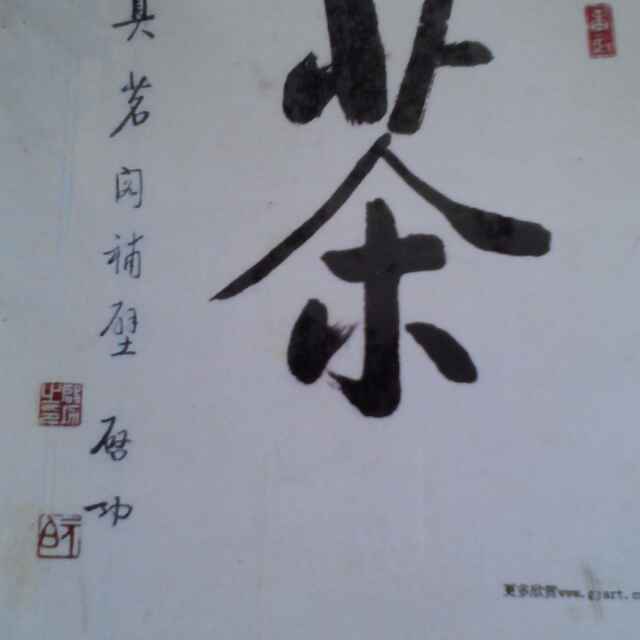 茶
具茗闵補壁 啓功
更多欣赏www.gyart.c